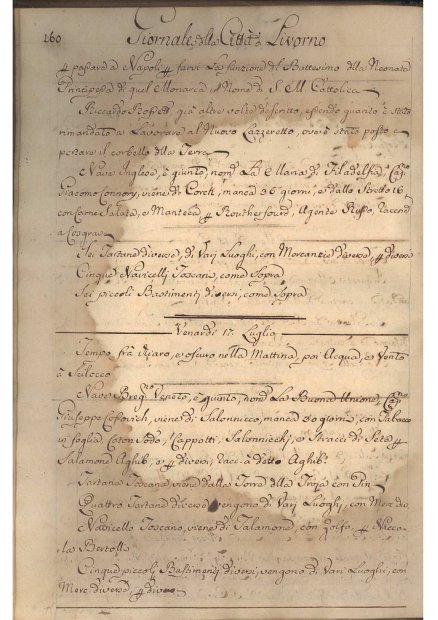 160 Giornale della Città di Livorno
passare a Napoli p farvi La funzione del Battesimo della Neonata
Principessa di quel Monarca A Nome di S. M. Cattolica
Riccardo già altre volte descritto, essendo quanto è stato
rimandato a Lavorare al Nuovo Lazzeretto, ove è stato posto a
portare il corbello della Terra
Nave Inglese, è giunto, nomta La Maria di Filadelfia, Capno
Giacomo Connory, viene di Corck, manca 36 giorni, e dallo Stretto 16
con Carne Salata, e Manteca p Routherfourd, Agente Russo, raccda
a
Sei Tartane diverse, di Varj Luoghi, con Mercanzie diverse, p diversi
Cinque Navicelli Toscani, come Sopra
Sei piccoli Bastimenti diversi, come Sopra
Venerdì 17 Luglio
Tempo frà Chiaro, e oscuro nella Mattina, poi Acqua, e Vento
à Scilocco
Nave Veneto, è giunto, nomta La Buona Unione, Capno
Giuseppe viene di Salonnicco, manca 50 giorni, con Tabacco
in foglia Coton Sodo, Cappotti, Salonnicchj, e Stracci di Seta p
Salamone Aghib, e p diversi, racc. à detto Aghib
Tartana Toscana, viene dalla Torre della Troja con Pin
Quattro Tartane diverse vengono di Varj Luoghi, con Merc. div.
Navicello Toscano, viene di Talamone, con Zolfo, p Nicco
la Bertolli
Cinque piccoli Bastimenti diversi, vengono di Varj Luoghi, con
Merc diverse, p diversi